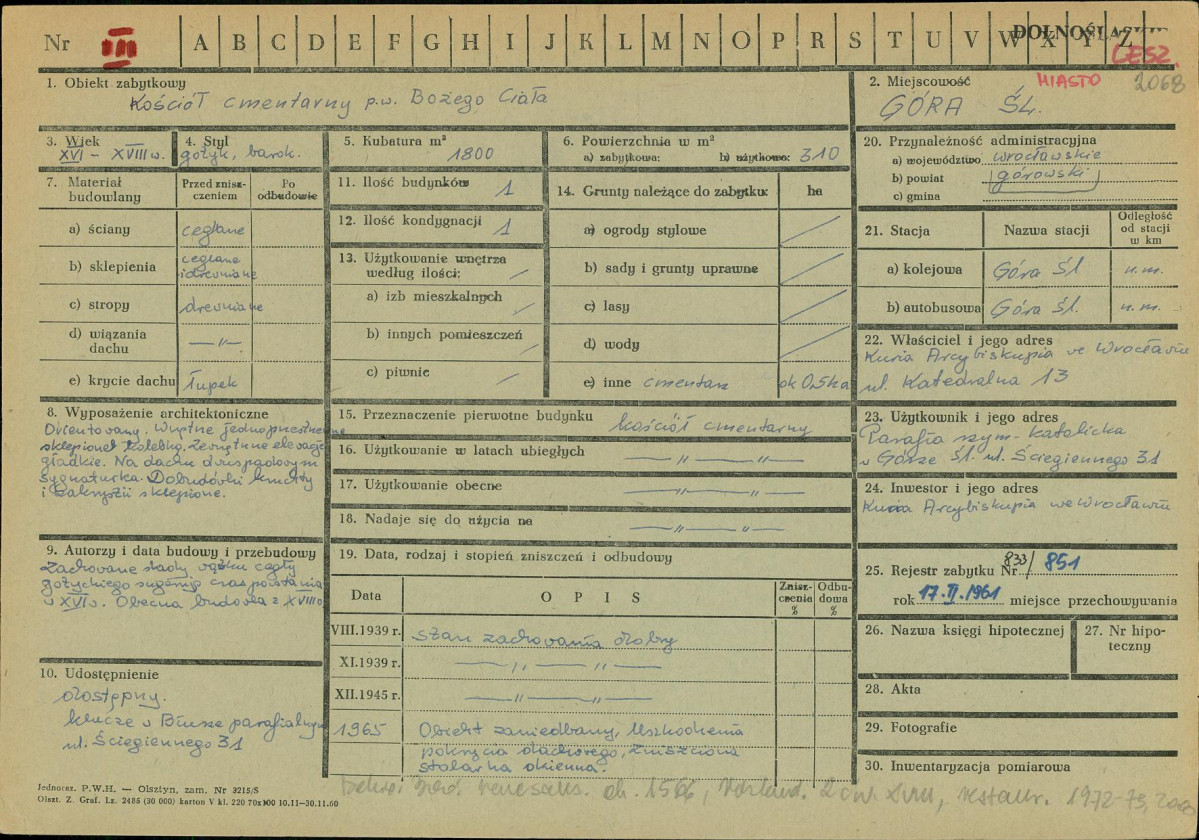 Nr III A B C D E F G H I J K L M N O P R S T U V W X Y Z
DOLNOŚLĄSK
LESZ.
1. Obiekt zabytkowy
Kościół cmentarny p.w. Bożego Ciała
2. Miejscowość MIASTO 2068
GÓRA ŚL.
3. Wiek
XVI – XVIII w.
4. Styl
gotyk, barok.
5. Kubatura m³
1800
6. Powierzchnia w m²
a) zabytkowa: b) użytkowa: 310
20. Przynależność administracyjna
a) województwo wrocławskie
b) powiat górowski
c) gmina
7. Materiał budowlany
Przed zniszczeniem
Po odbudowie
a) ściany ceglane
b) sklepienia ceglane i drewniane
c) stropy drewniane
d) wiązania dachu —"—
e) krycie dachu łupek
11. Ilość budynków 1
12. Ilość kondygnacji 1
13. Użytkowanie wnętrza
według ilości: /
a) izb mieszkalnych /
b) innych pomieszczeń /
c) piwnic /
14. Grunty należące do zabytku: ha
a) ogrody stylowe /
b) sady i grunty uprawne /
c) lasy /
d) wody /
e) inne cmentarz ok 0,5 ha
21. Stacja Nazwa stacji Odległość od stacji w km
a) kolejowa Góra Śl. n.m.
b) autobusowa Góra Śl. n.m.
22. Właściciel i jego adres
Kuria Arcybiskupia we Wrocławiu
ul. Katedralna 13
8. Wyposażenie architektoniczne
Orientowany. Wnętrze jednoprzestrzenne
sklepione kolebką. Zewnętrzne elewacje
gładkie. Na dachu dwuspadowym
sygnaturka. Dobudówki kruchty
i zakrystii sklepione.
15. Przeznaczenie pierwotne budynku kościół cmentarny
16. Użytkowanie w latach ubiegłych —"— —"—
17. Użytkowanie obecne —"— —"—
18. Nadaje się do użycia na —"— —"—
23. Użytkownik i jego adres
Parafia rzym. katolicka
w Górze Śl. ul. Ściegiennego 31
24. Inwestor i jego adres
Kuria Arcybiskupia we Wrocławiu
9. Autorzy i data budowy i przebudowy
Zachowane ślady wątku cegły
gotyckiego sugerują czas powstania
w XVI w. Obecna budowla z XVIII w
19. Data, rodzaj i stopień zniszczeń i odbudowy
Data OPIS Zniszczenia % Odbudowa %
VIII.1939 r. stan zachowania dobry
XI.1939 r. —"— —"—
XII.1945 r. —"— —"—
1965 Obiekt zaniedbany, Uszkodzenia
pokrycia dachowego, zniszczona
stolarka okienna.
25. Rejestr zabytku Nr 833/851
rok 17.II.1961 miejsce przechowywania
26. Nazwa księgi hipotecznej
27. Nr hipoteczny
28. Akta
29. Fotografie
30. Inwentaryzacja pomiarowa
10. Udostępnienie
dostępny.
klucze w Biurze parafialnym
ul. Ściegiennego 31
Jednocz. P.W.H. — Olsztyn, zam. Nr 3215/S
Olszt. Z. Graf. Lz. 2485 (30 000) karton V kl. 220 70x100 10.11–30.11.60
renesans. ok. 2 w. XVIII, restaur. 1972-73,